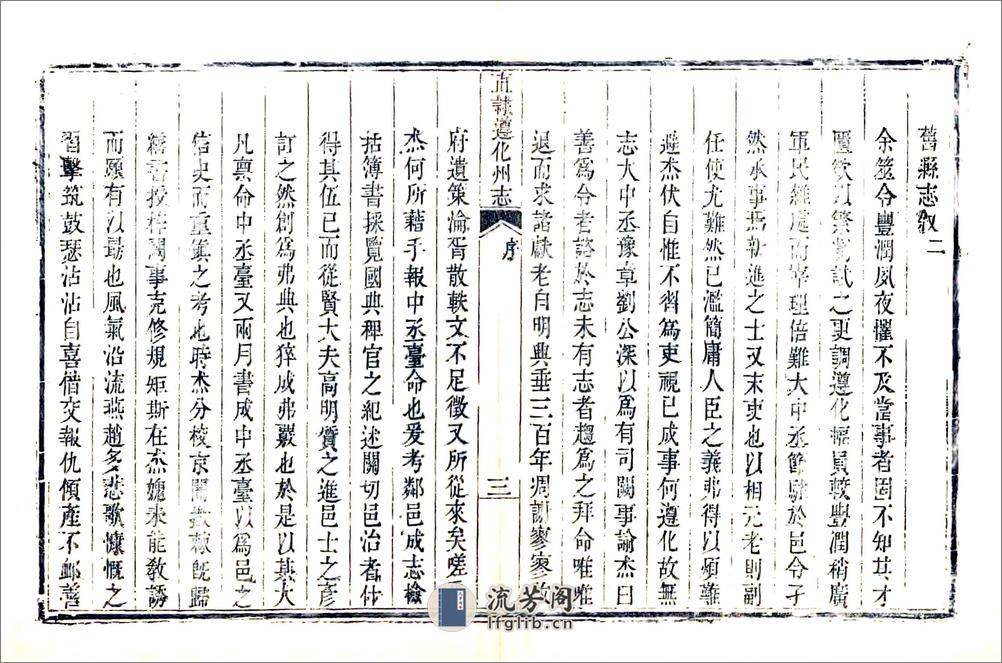 舊縣志敘二
余筮令豐潤夙夜懼不及當事者固不知其才
匱欲以繁劇試之更調遵化幅員較豐潤稍廣
軍民雜處而宰理倍難大中丞節駐於邑令孑
然承事焉新進之士又末吏也以相元老則副
任使尤難然已濫簡庸人臣之義弗得以煩難
避杰伏自惟不習為吏視已成事何遵化故無
志大中丞豫章劉公深以為有司闕事諭杰曰
善為令者諮於志未有志者趨為之拜命唯唯
退而求諸獻老自明興垂三百年凋謝寥寥故
直隸遵化州志
序
三
府遺策淪胥散軼文不足徵又所從來矣嗟
杰何所藉乎報中丞臺命也爰考鄰邑成志檢
括簿書採覽國典稗官之紀述關切邑治者什
得其伍已而從賢大夫高明質之進邑士之彥
訂之然創為弗典也猝成弗嚴也於是以其大
凡稟命中丞臺又兩月書成中丞臺以為邑之
信史而重鎮之考也時杰分校京闈撤棘既歸
繕書授梓闕事克修規矩斯在杰媿未能教誘
而願有以勗也風氣沿流燕趙多悲歌慷慨之
習擊筑鼓瑟沾沾自喜借交報仇傾產不卹善
流芳阁
lfglib.cn